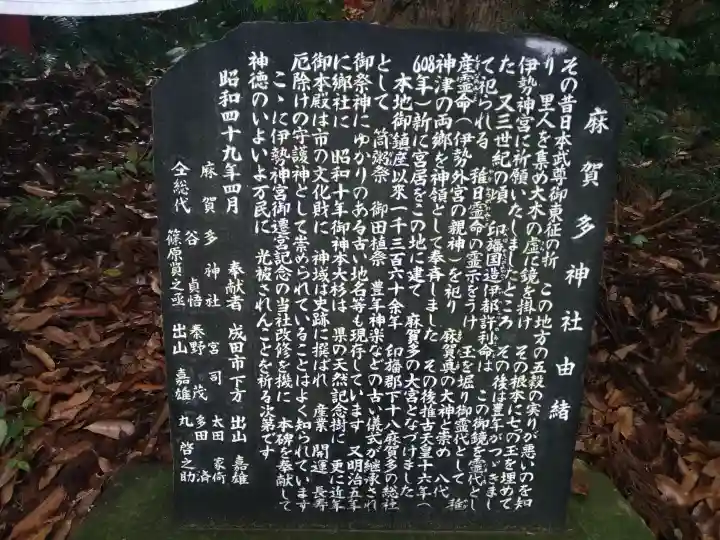 麻賀多神社由緒
その昔日本武尊御東征の折 この地方の五穀の実りが悪いのを知
り 里人を集め大木の虚に鏡を掛け その根本に七つの玉を埋めて
伊勢神宮に祈願いたしましたところ その後は豊年がつゞきまし
た 又三世紀の頃 印旛国造伊都許利命は この御鏡を霊代とし
て祀られる 稚日霊命の霊示をうけ 玉を堀り御霊代として 稚
産霊命(伊勢外宮の親神)を祀り 麻賀真の大神と崇め 八代
神津の両郷を神領として奉斉しました その後推古天皇十六年(
608年)新に宮居をこの地に建て 麻賀多の大宮となづけました
本地御鎮座以來一千三百六十余年 印旛郡下十八麻賀多の総社
として 筒粥祭 御田植祭 豊年神楽などの古い儀式が継承され
御祭神にゆかりのある古い地名等も現存しています 又明治五年
に郷社に 昭和十年御神本大杉は 県の天然記念樹に 更に近年
御本殿は市の文化財に 神域は史跡に撰ばれ 産業 開運 長寿
厄除けの守護神として崇められていることはよく知られています
こゝに伊勢神宮御遷宮記念の当社改修を機に 本碑を奉献して
神徳のいよいよ万民に 光被されんことを祈る次第です
昭和四十九年四月
奉献者 成田市下方 出山 嘉雄
麻賀多神社 宮司 太田 家何
全総代 谷 貞悟 秦野 茂 多田 済
篠原賀之丞 出山 嘉雄 丸 啓之助